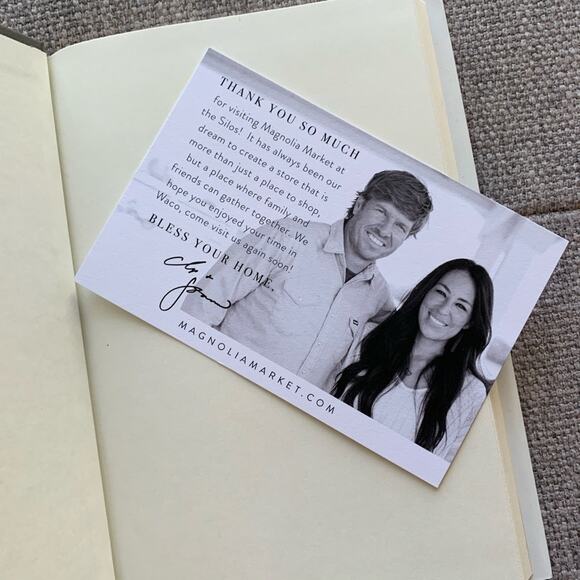 THANK YOU SO MUCH
for visiting Magnolia Market at
the Silos! It has always been our
dream to create a store that is
more than just a place to shop,
but a place where family and
friends can gather together. We
hope you enjoyed your time in
Waco, come visit us again soon!
BLESS YOUR HOME.
MAGNOLIAMARKET.COM